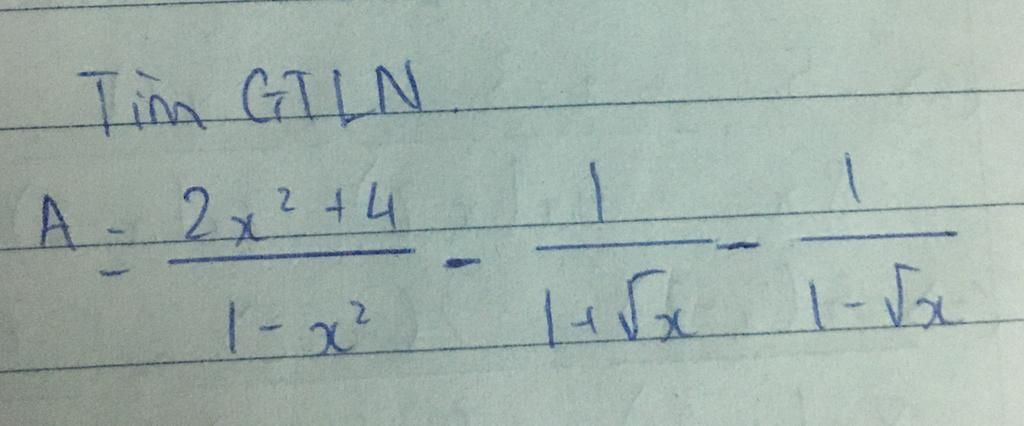 Tìm GTLN.
A = \frac{2x^2+4}{1-x^2} - \frac{1}{1+\sqrt{x}} - \frac{1}{1-\sqrt{x}}